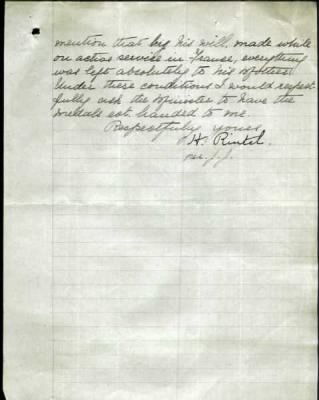 mention that by his will, made while
on active service in France, everything
was left absolutely to his Mother.
Under these conditions I would respect-
fully ask the Minister to have the
medals ect. handed to me.
Respectfully yours
H. Rintel.